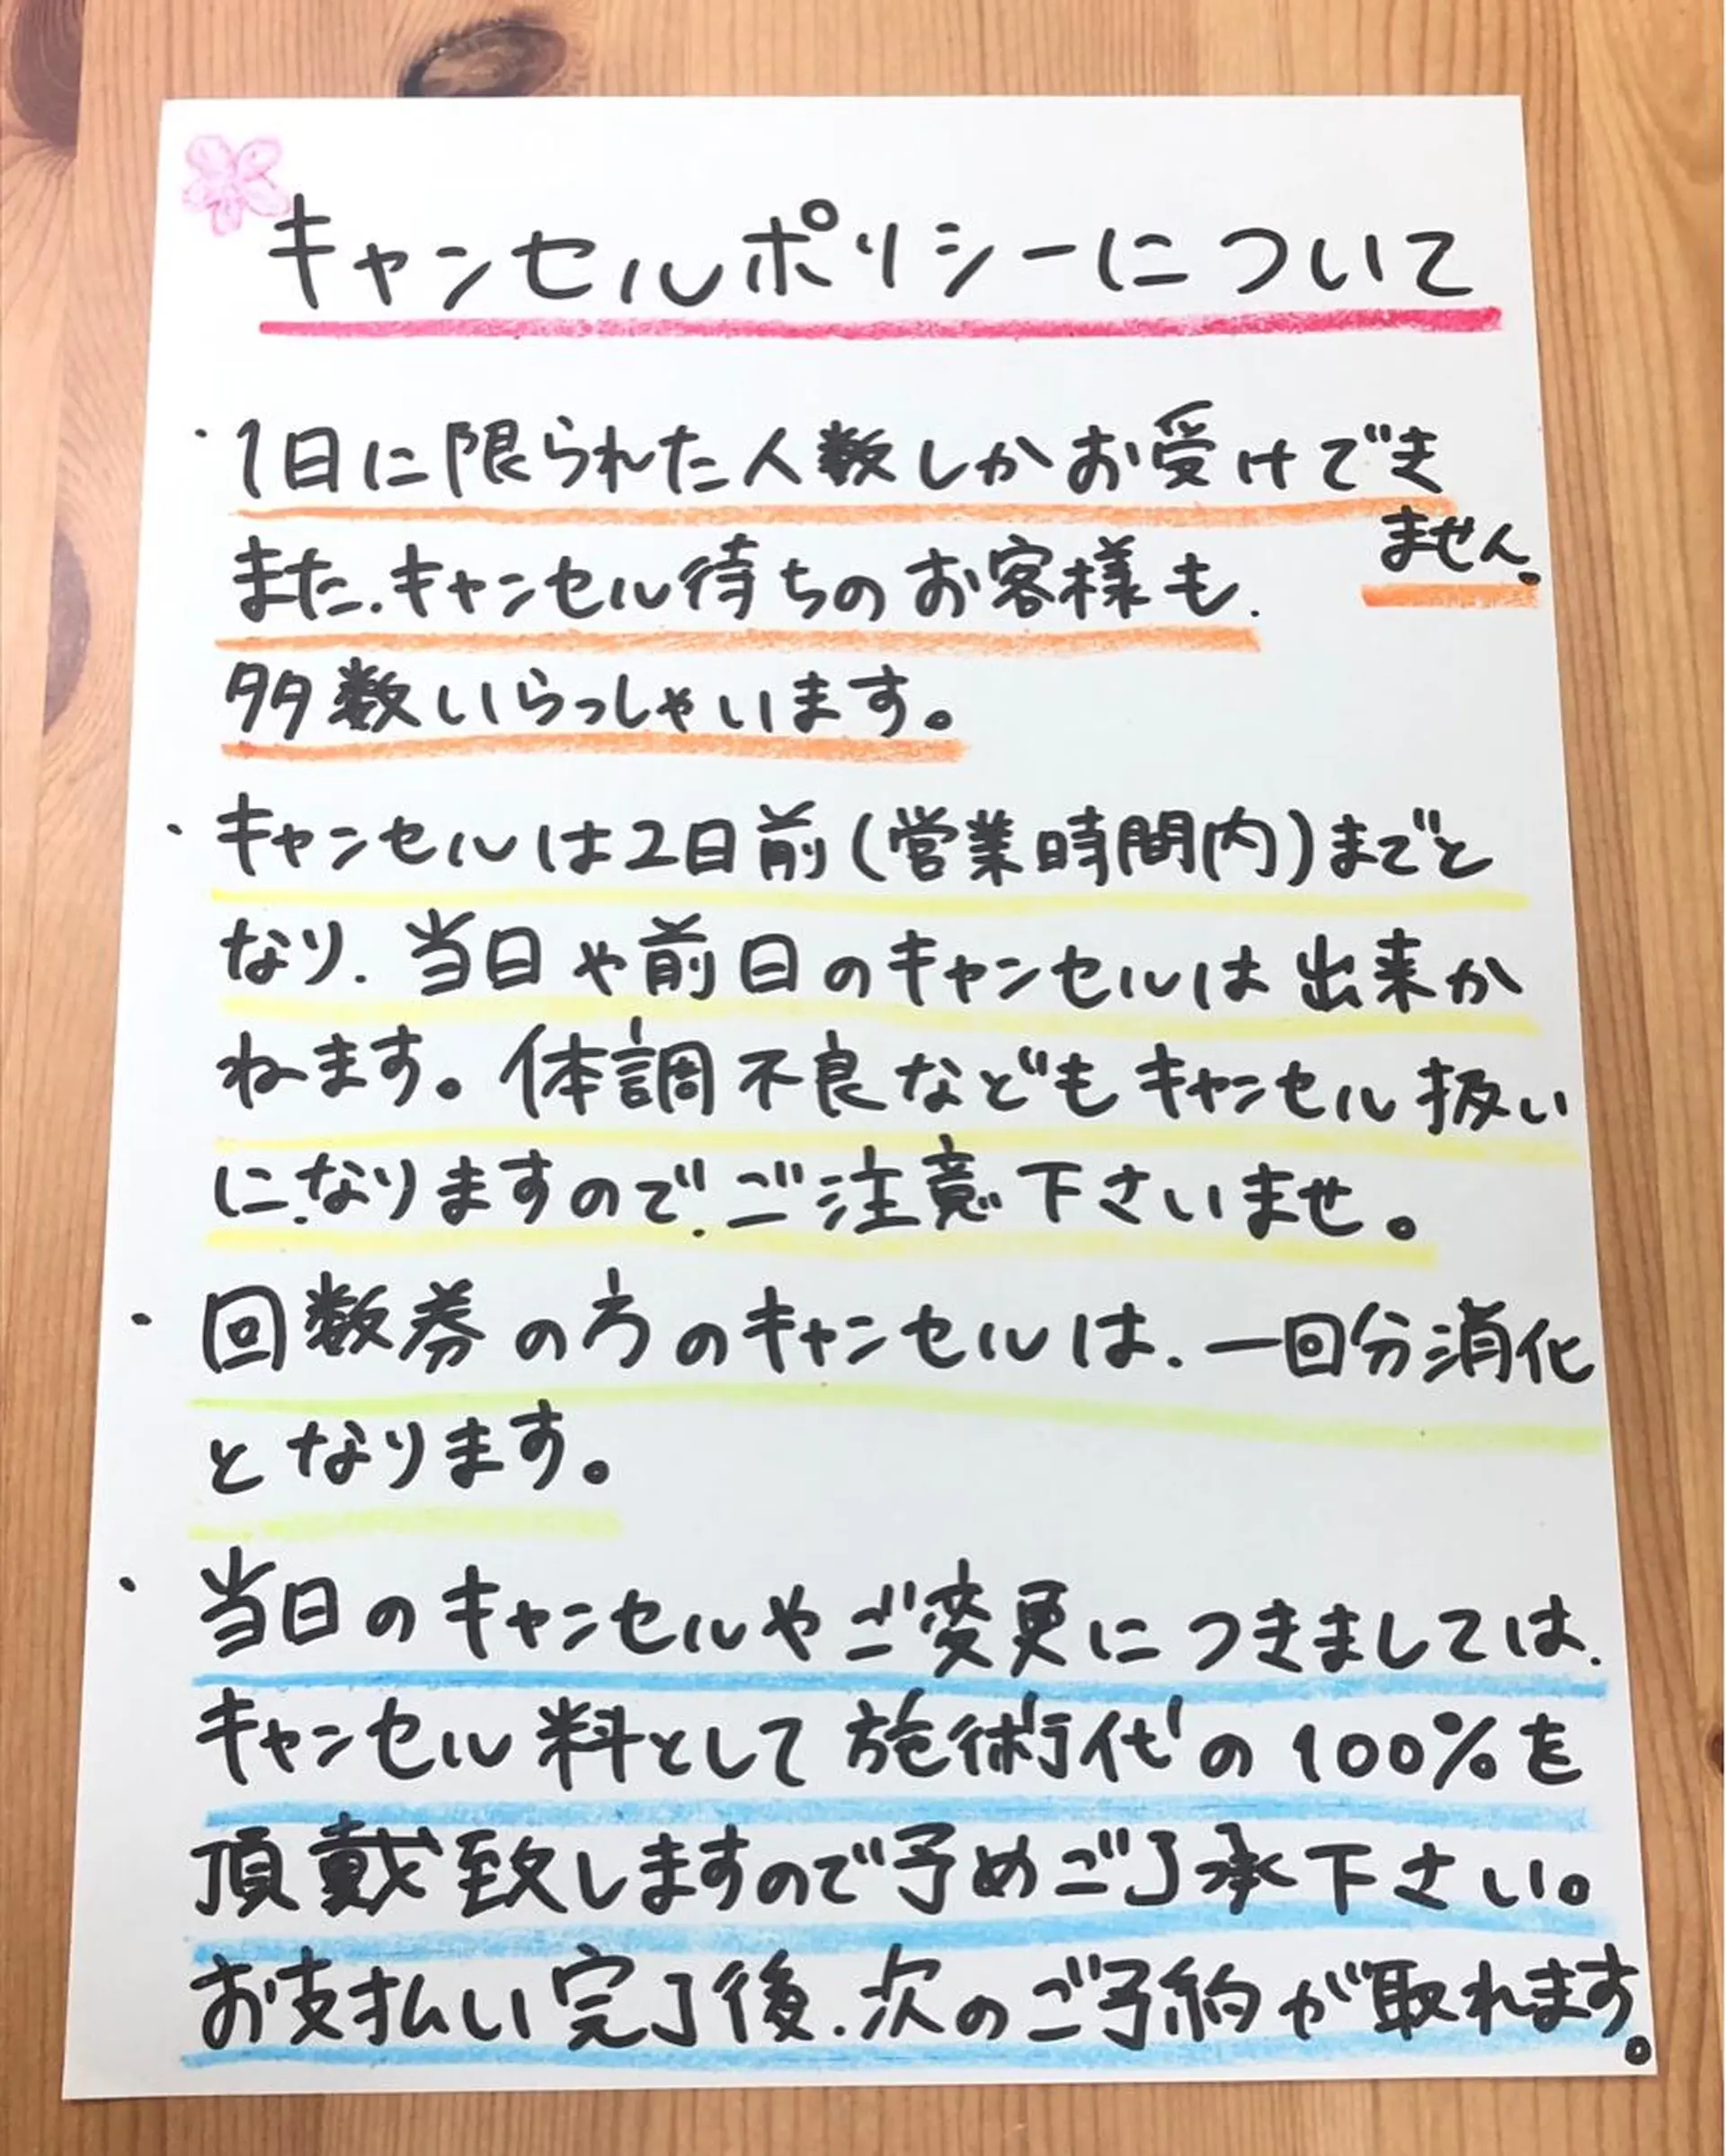 キャンセルポリシーについて
・1日に限られた人数しかお受けでき
ません。
また、キャンセル待ちのお客様も、
多数いらっしゃいます。
・キャンセルは2日前(営業時間内)までと
なり、当日や前日のキャンセルは出来か
ねます。体調不良などもキャンセル扱い
になりますので、ご注意下さいませ。
・回数券の方のキャンセルは、一回分消化
となります。
・当日のキャンセルやご変更につきましては、
キャンセル料として施術代の100%を
頂戴致しますので予めご了承下さい。
お支払い完了後、次のご予約が取れます。